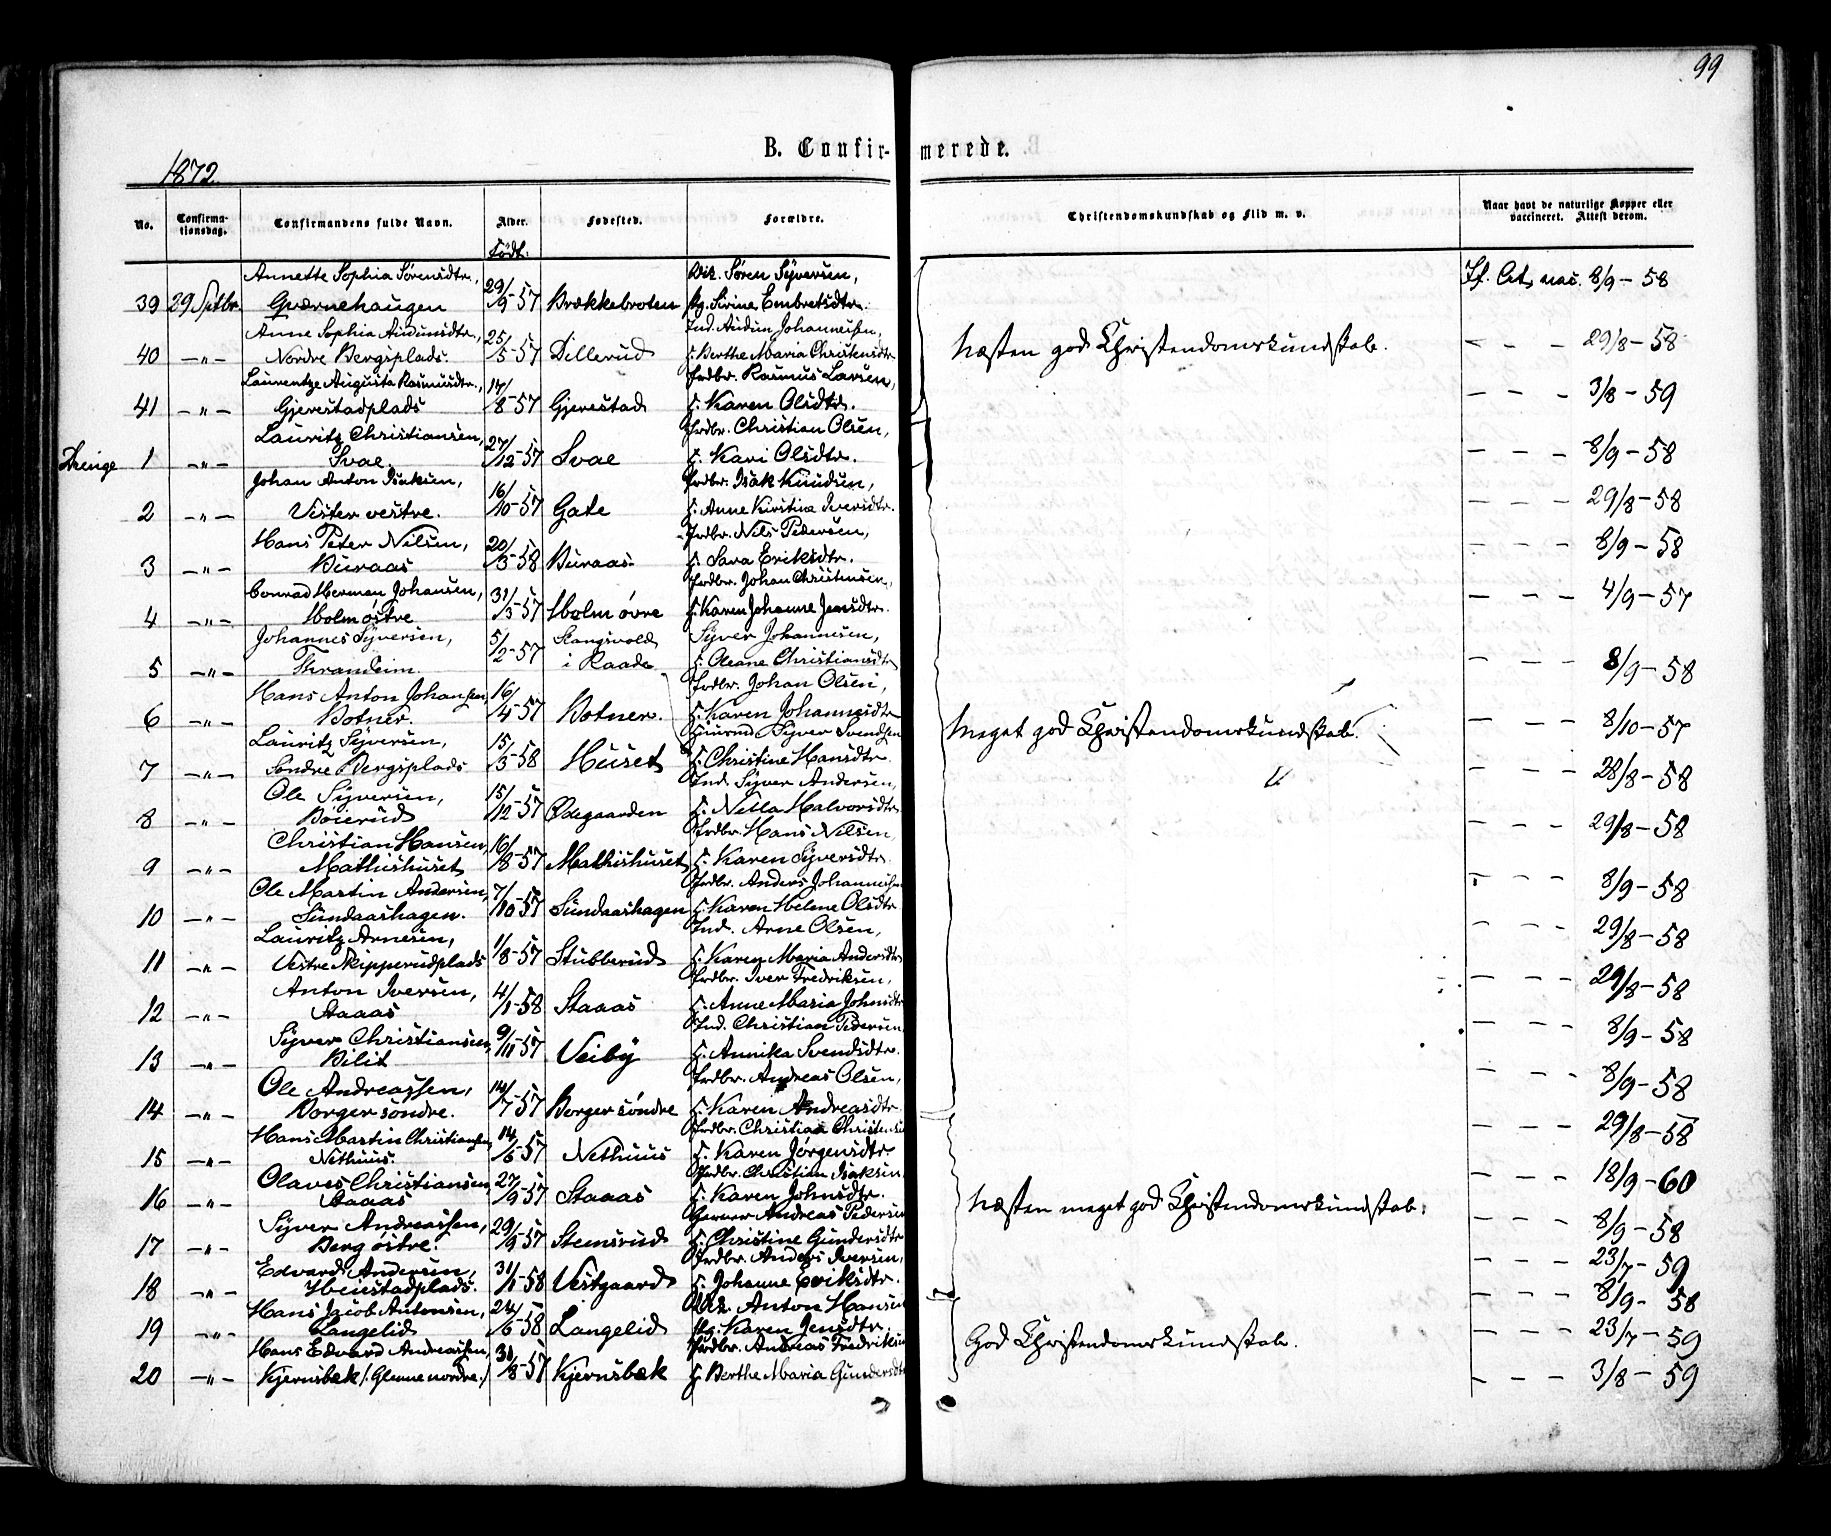 99
B. Confir- merede.
1872.
No. Confirma-tionsdag. Confirmandens fulde Navn. Alder. Fødested. Forældre. Christendomskundskab og Flid m. v. Naar havt de naturlige Kopper eller vaccineret. Attest derom.
Født:
Annette Sophia Sørensdtr., Søren Syversen,
39 29 Septbr. Qværnehaugen 29/9-57 Brækkebroten Pg. Sirine Embretsdtr. 8/9-58
Anne Sophia Audunsdtr., Ind. Audun Johannesen,
40 -"- Nordre Bergsplads. 25/5-57 Dillerud Berthe Maria Christensdtr Næsten god Christendomskundskab. - - - 29/8-58
Laurentze Augusta Rasmusdtr., Grdbr. Rasmus Larsen,
41 -"- Gjerestadplads 17/8-57 Gjerestad Karen Olsdtr. - - - 3/8-59
Lauritz Christiansen, Grdbr. Christian Olsen,
Drenge 1 -"- Svae. 27/12-57 Svae Kari Olsdtr. - - - 8/9-58
Johan Anton Isaksen, Grdbr. Isak Knudsen,
2 -"- Vister vestre. 16/10-57 Gate Anne Kirstine Iversdtr. - - - 29/8-58
Hans Peter Nilsen, Grdbr. Nils Pedersen,
3 -"- Buraas 20/3-58 Buraas Sara Eriksdtr. - - - 8/9-58
Conrad Herman Johansen, Grdbr. Johan Christensen,
4 -"- Holm østre 31/3-57 Holm øvre Karen Johanne Jensdtr. - - - 4/9-57
Johannes Syversen, 5/2-57 Slangsvold Syver Johannesen,
5 -"- i Raade Oleane Christiansdtr - - - 8/9-58
Hans Anton Johansen, Grdbr. Johan Olsen,
6 -"- Botner. 16/4-57 Botner. Karen Johannesdtr Meget god Christendomskundskab. - - - 8/10-57
Lauritz Syversen, Syver Svendsen
7 -"- Søndre Bergsplads 15/3-58 Huset Christine Hansdtr. - - - 28/8-58
Ole Syversen, Ind. Syver Andersen,
8 -"- Bøierud 15/12-57 Ødegaarden Nella Halvorsdtr - - - 29/8-58
Christian Hansen, Grdbr. Hans Nilsen,
9 -"- Mathishuset 16/8-57 Mathishuset Karen Syversdtr. - - - 8/9-58
Ole Martin Andersen, Grdbr. Anders Johannesen
10 -"- Sundaashagen. 7/10-57 Sundaashagen Karen Helene Olsdtr - - - 29/8-58
Lauritz Arnesen, Ind. Arne Olsen,
11 -"- Vestre Skipperudplads 1/8-57 Stubberud Karen Maria Andersdtr - - - 29/8-58
Anton Iversen, Grdbr. Iver Fredriksen,
12 -"- Staaas 4/1-58 Staaas Anne Maria Johnsdtr - - - 8/9-58
Syver Christiansen, Ind. Christian Pedersen
13 -"- Bilit 9/11-57 Veiby Annika Svendsdtr. - - - 8/9-58
Ole Andreassen, Grdbr. Andreas Olsen,
14 -"- Borger søndre. 14/7-57 Borger søndre Karen Andreasdtr. - - - 29/8-58
Hans Martin Christiansen, Grdbr. Christian Christensen
15 -"- Nethuus. 14/6-57 Nethuus Karen Jørgensdtr - - - 18/9-60
Olaves Christiansen, Grdbr. Christian Isaksen
16 -"- Staaas 27/9-57 Staaas Karen Johnsdtr. Næsten meget god Christendomskundskab. - - - 8/9-58
Syver Andreassen, Andreas Pedersen
17 -"- Berg østre. 29/9-57 Stensrud Christine Gundersdtr - - - 23/7-59
Edvard Andersen, Grdbr. Anders Iversen,
18 -"- Heiestadplads. 31/1-58 Vestgaard Johanne Eriksdtr. - - - 8/9-58
Hans Jacob Antonsen, Anton Hansen
19 -"- Langelid 24/6-58 Langelid Pg. Karen Jensdtr. God Christendomskundskab. - - - 23/7-59
Hans Edvard Andreassen, Grdbr. Andreas Fredriksen
20 -"- Kjernsbæk /: Glenne nordre./ 31/8-57 Kjernsbæk Berthe Maria Gundersdtr - - - 3/8-59